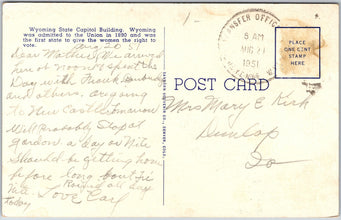 Wyoming State Capitol Building. Wyoming
was admitted to the Union in 1890 and was
the first state to give the women the right to
vote.
Aug 20 51
Dear Mother, We arrived
here at noon. spent the
Day with
and others. are going
to New Castle Tomorrow
Will Probably Stop at
Gordon a day or Nite
Should be getting home
before long
Rained all day
Today Love Earl
TRANSFER OFFICE
5 AM
AUG 21
1951
PLACE
ONE CENT
STAMP
HERE
POST CARD
Mrs Mary E Kirk
Dunlap
Ia